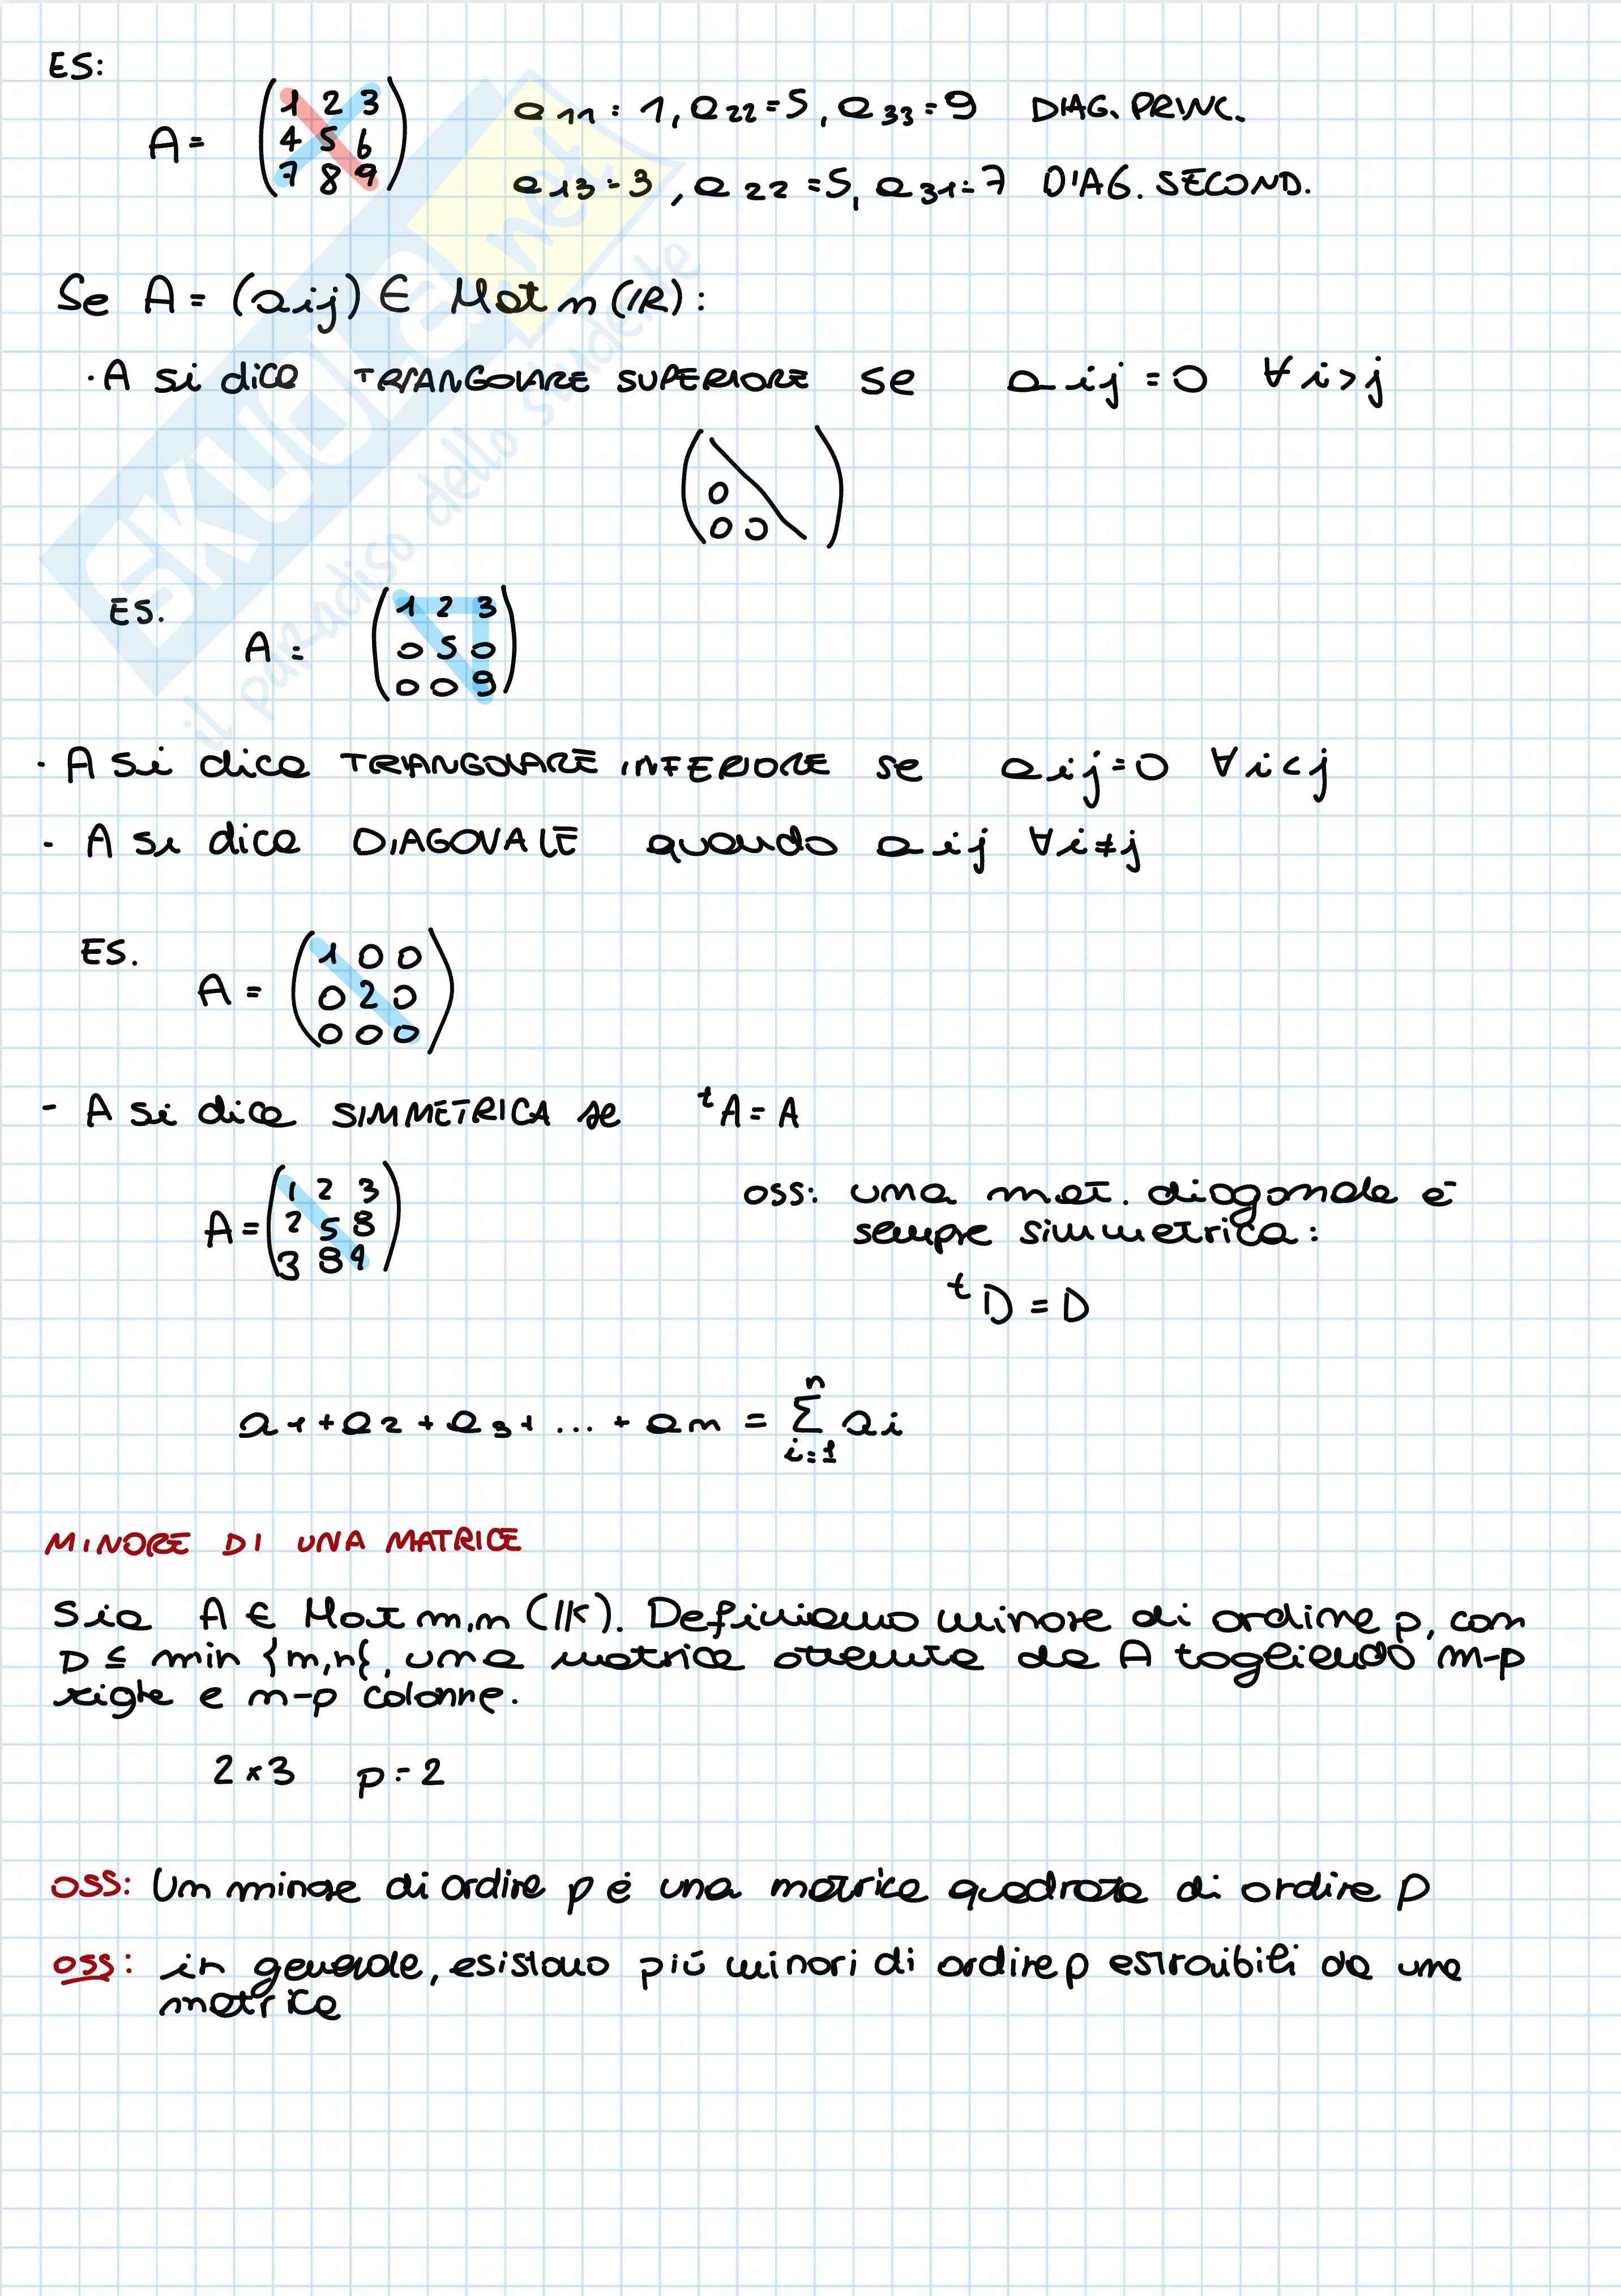 ES:
A = (1 2 3
4 5 6
7 8 9)
a11 = 1, a22 = 5, a33 = 9 DIAG. PRINC.
a13 = 3, a22 = 5, a31 = 7 DIAG. SECOND.
Se A = (aij) ∈ Mat n (IR):
· A si dice TRIANGOLARE SUPERIORE se aij = 0 ∀ i > j
(0
0 0)
ES.
A = (1 2 3
0 5 0
0 0 9)
· A si dice TRIANGOLARE INFERIORE se aij = 0 ∀ i < j
- A si dice DIAGONALE quando aij ∀ i ≠ j
ES.
A = (1 0 0
0 2 0
0 0 0)
- A si dice SIMMETRICA se ᵗA = A
A = (1 2 3
2 5 8
3 8 9)
oss: una mat. diagonale è
sempre simmetrica:
ᵗD = D
a1 + a2 + a3 + ... + an = Σ(i=1, n) ai
MINORE DI UNA MATRICE
Sia A ∈ Mat m,n (IK). Definiamo minore di ordine p, con
p ≤ min {m,n}, una matrice ottenuta da A togliendo m-p
righe e n-p colonne.
2×3 p = 2
oss: Un minore di ordine p è una matrice quadrata di ordine p
oss: in generale, esistono più minori di ordine p estraibili da una
matrice
SKUOLA.net
il paradiso dello studente